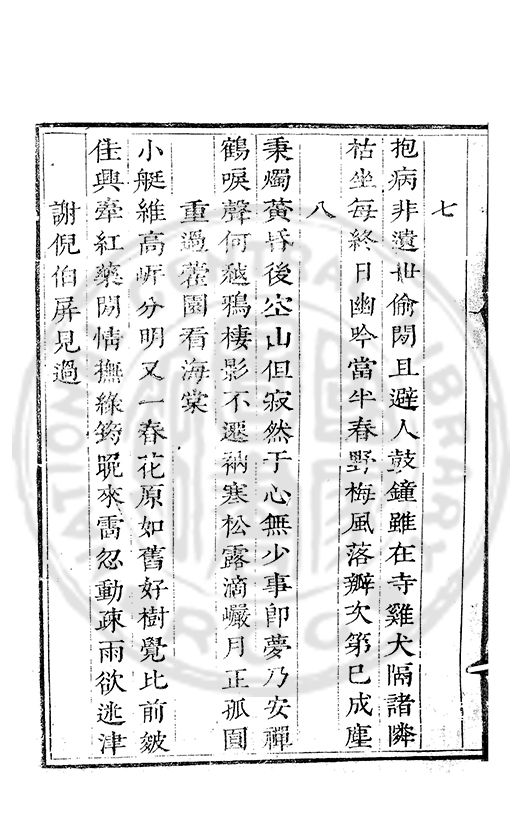 七
抱病非遺世偷閑且避人鼓鐘雖在寺雞犬隔諸隣
枯坐每終日幽吟當半春野梅風落瓣次第已成塵
八
秉燭黃昏後空山但寂然于心無少事卽夢乃安禪
鶴唳聲何越鴉棲影不遷衲寒松露滴巖月正孤圓
重過藿園看海棠
小艇維高岸分明又一春花原如舊好樹覺比前皴
佳興牽紅藥閑情撫綠筠晚來雷忽動疎雨欲迷津
謝倪伯屏見過